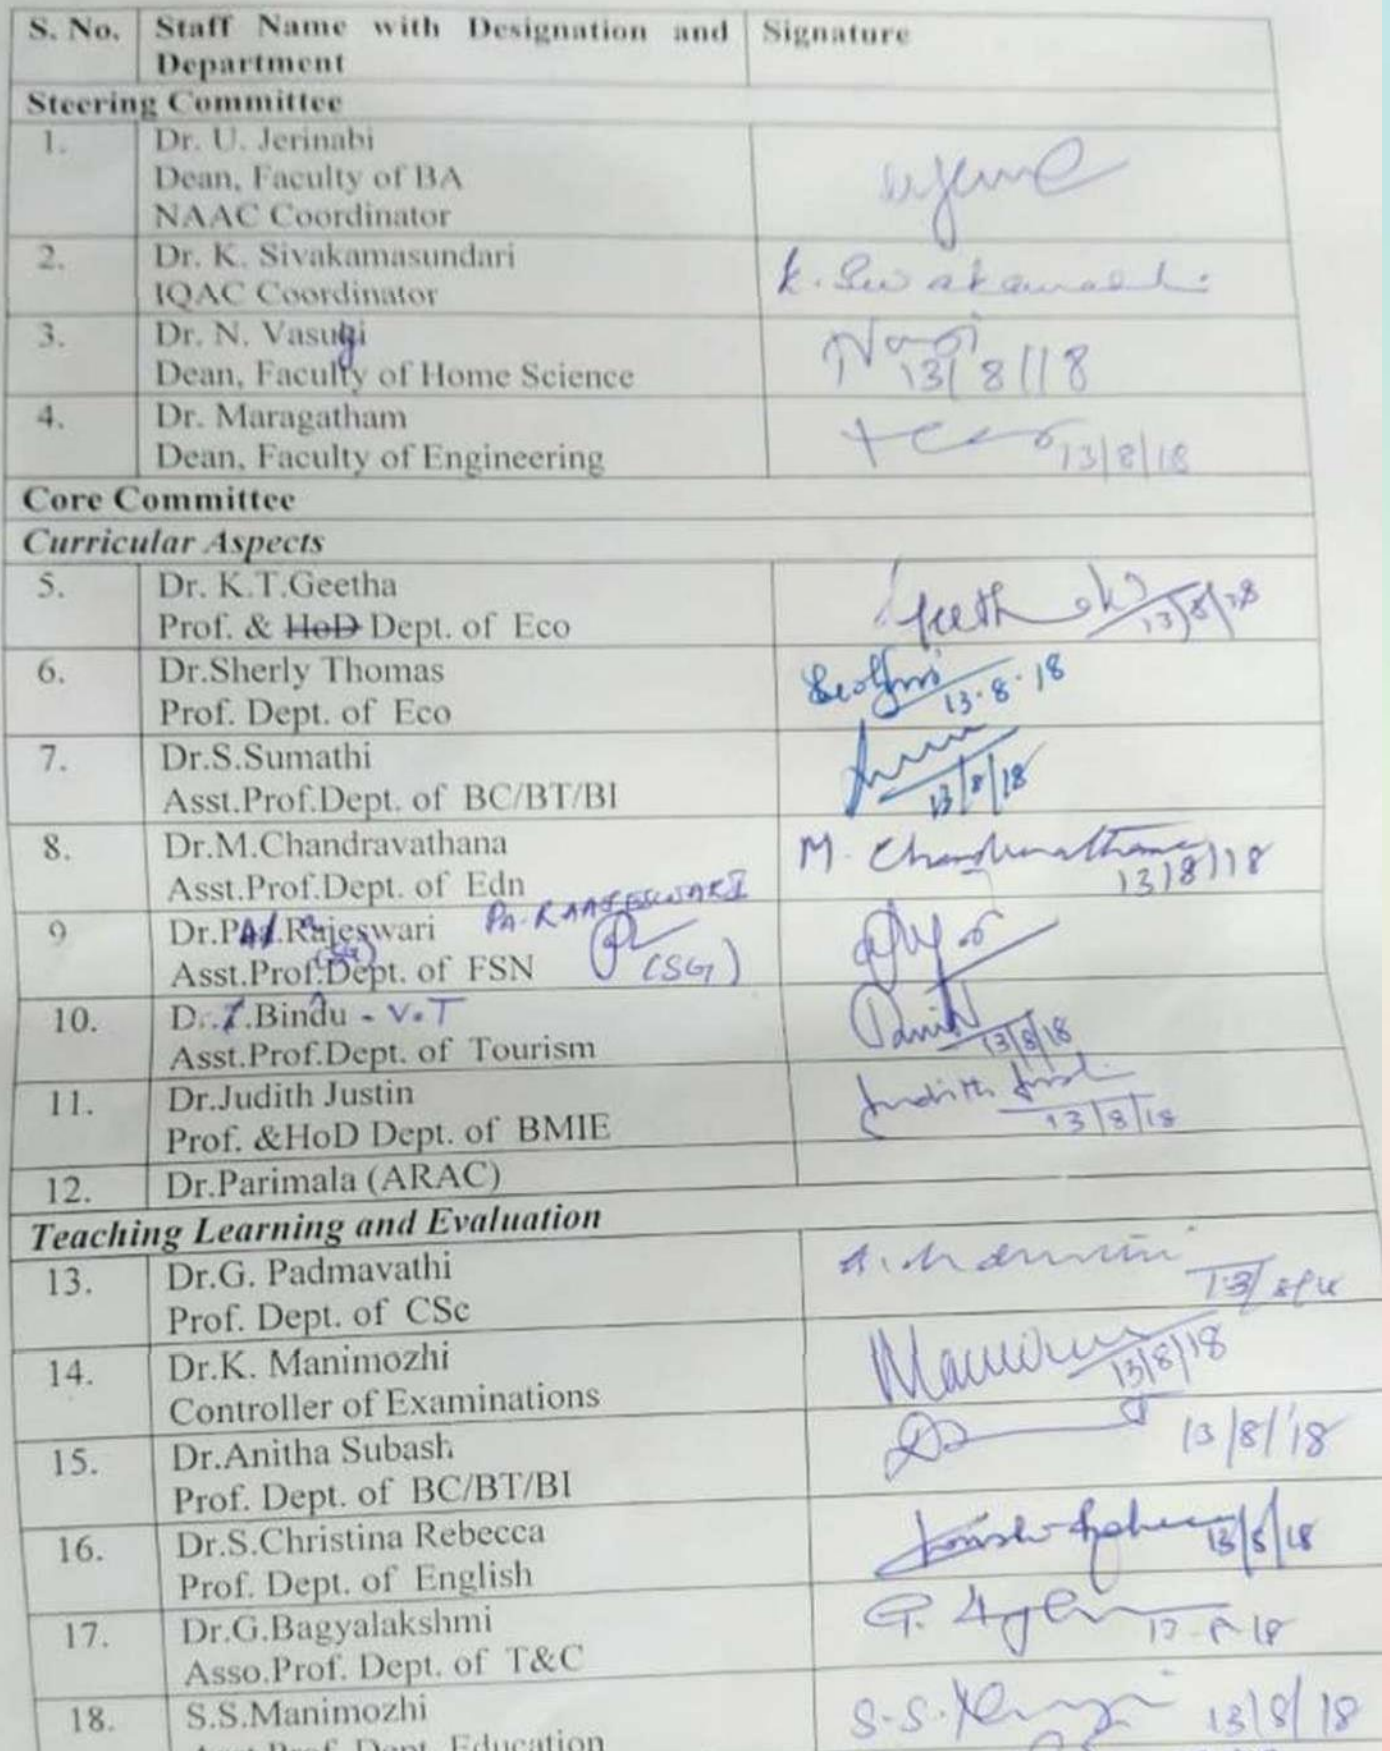 S. No. Staff Name with Designation and Department Signature
Steering Committee
1. Dr. U. Jerinabi
Dean, Faculty of BA
NAAC Coordinator
2. Dr. K. Sivakamasundari
IQAC Coordinator
3. Dr. N. Vasugi
Dean, Faculty of Home Science
13/8/18
4. Dr. Maragatham
Dean, Faculty of Engineering
13/8/18
Core Committee
Curricular Aspects
5. Dr. K.T.Geetha
Prof. & HoD Dept. of Eco
13/8/18
6. Dr.Sherly Thomas
Prof. Dept. of Eco
13.8.18
7. Dr.S.Sumathi
Asst.Prof.Dept. of BC/BT/BI
13/8/18
8. Dr.M.Chandravathana M. Chandravathana
Asst.Prof.Dept. of Edn
13/8/18
9 Dr.PA.Rajeswari PA. RAAJESWARI
Asst.Prof.Dept. of FSN (SG)
10. Dr.T.Bindu - V.T
Asst.Prof.Dept. of Tourism
13/8/18
11. Dr.Judith Justin Judith Justin
Prof. &HoD Dept. of BMIE
13/8/18
12. Dr.Parimala (ARAC)
Teaching Learning and Evaluation
13. Dr.G. Padmavathi
Prof. Dept. of CSc
14. Dr.K. Manimozhi
Controller of Examinations
13/8/18
15. Dr.Anitha Subash
Prof. Dept. of BC/BT/BI
13/8/18
16. Dr.S.Christina Rebecca
Prof. Dept. of English
13/8/18
17. Dr.G.Bagyalakshmi
Asso.Prof. Dept. of T&C
18. S.S.Manimozhi
13/8/18
Asst.Prof. Dept. Education